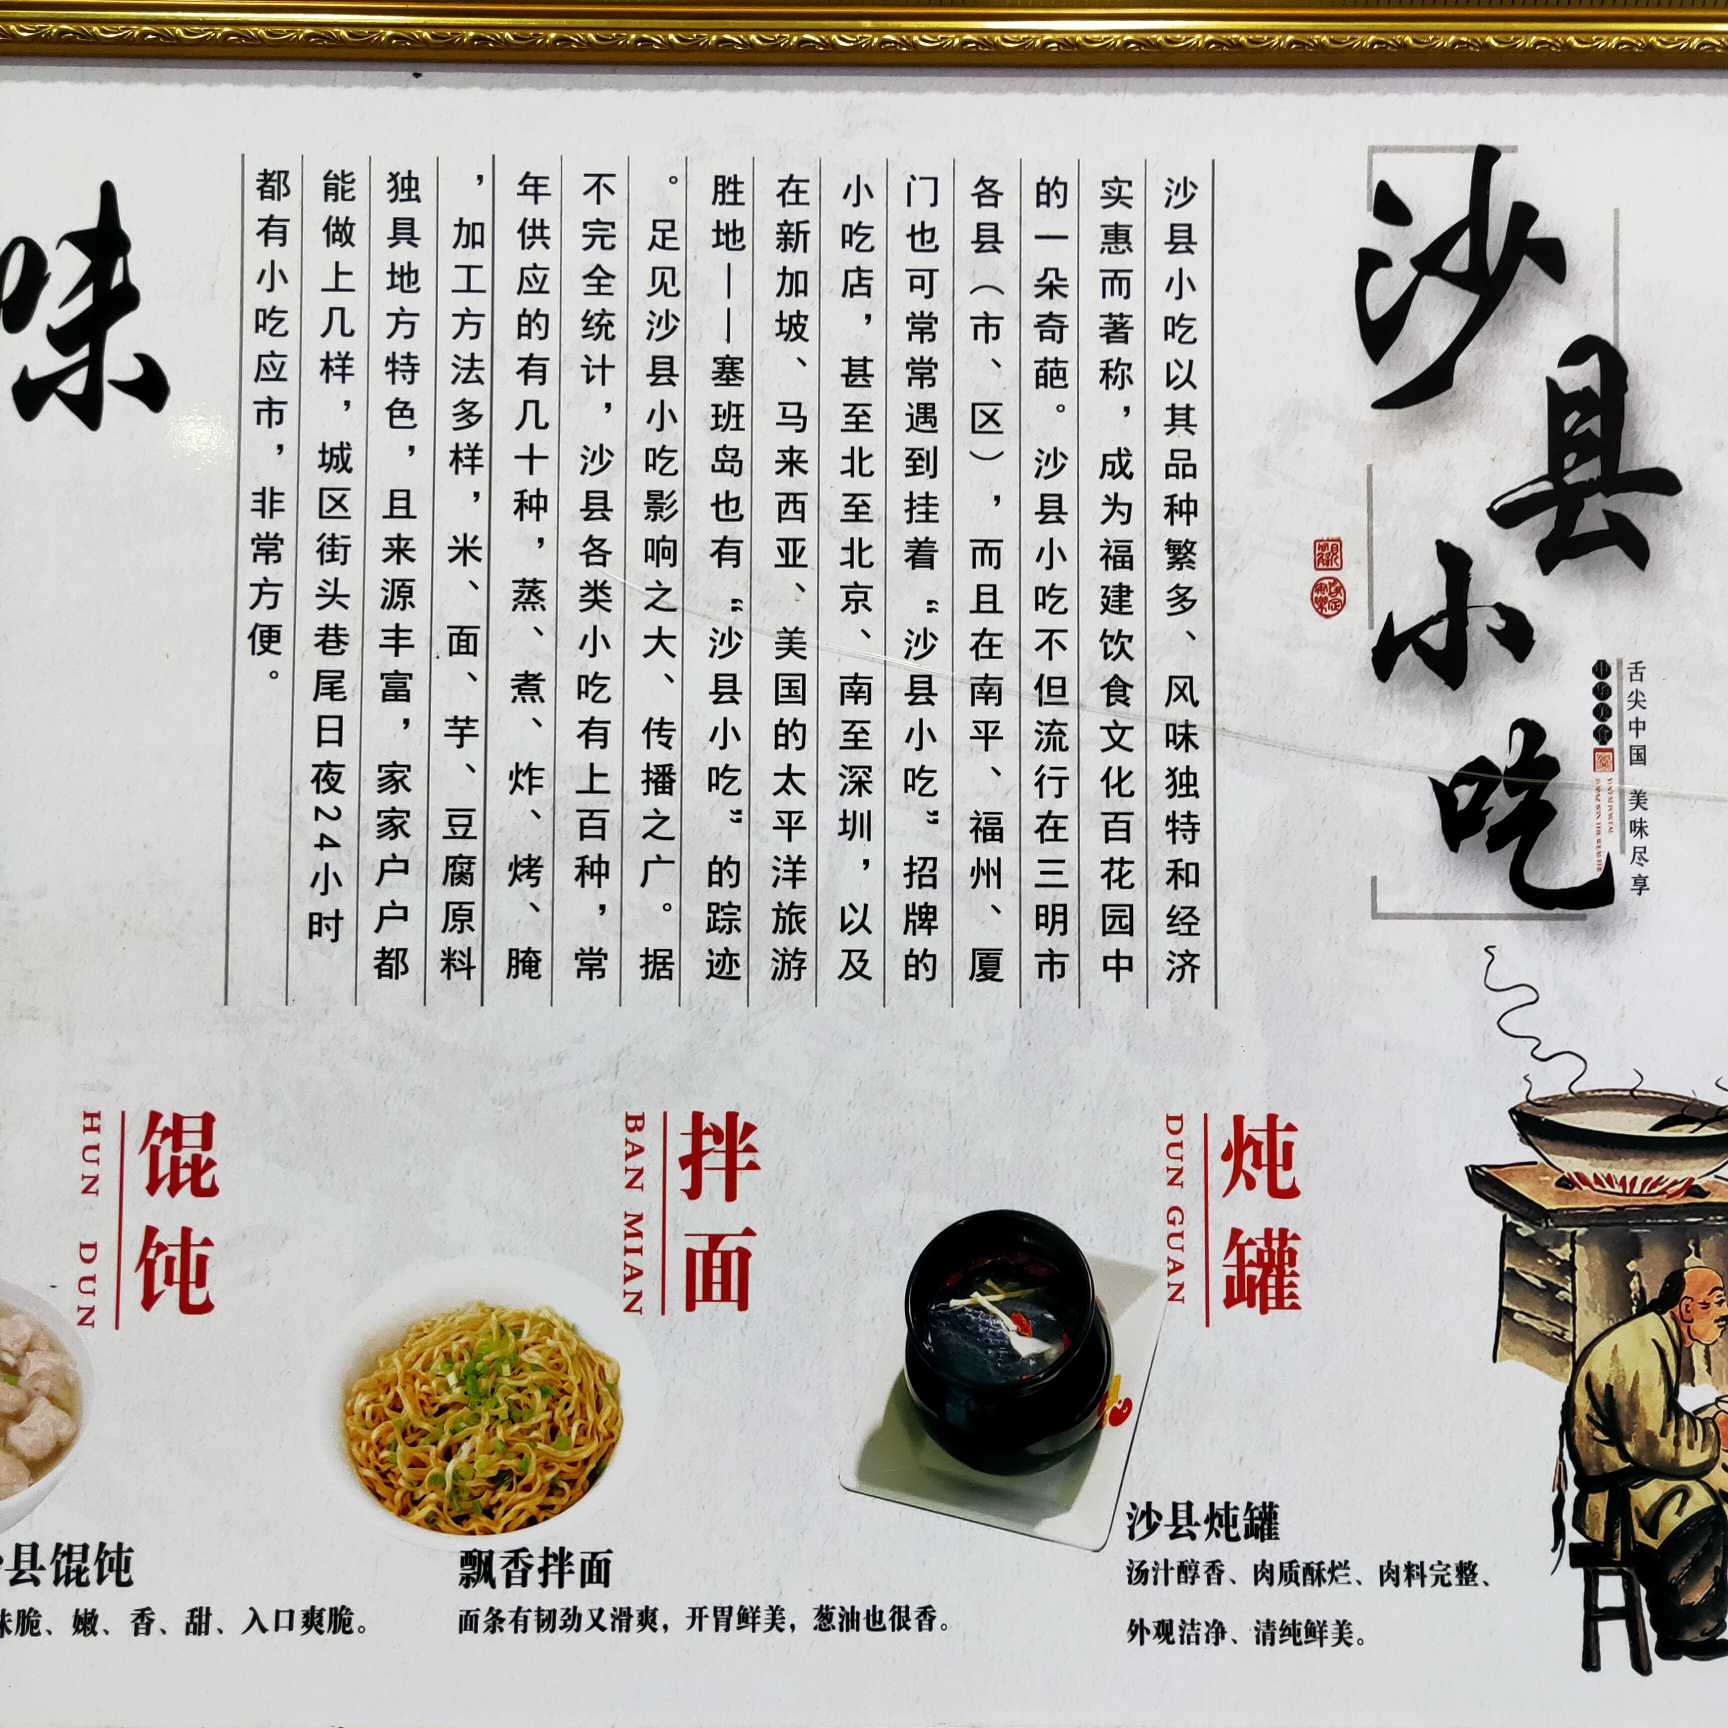 沙县小吃
舌尖中国 美味尽享
中华美食
沙县小吃以其品种繁多、风味独特和经济
实惠而著称，成为福建饮食文化百花园中
的一朵奇葩。沙县小吃不但流行在三明市
各县（市、区），而且在南平、福州、厦
门也可常常遇到挂着“沙县小吃”招牌的
小吃店，甚至北至北京、南至深圳，以及
在新加坡、马来西亚、美国的太平洋旅游
胜地——塞班岛也有“沙县小吃”的踪迹
。足见沙县小吃影响之大、传播之广。据
不完全统计，沙县各类小吃有上百种，常
年供应的有几十种，蒸、煮、炸、烤、腌
，加工方法多样，米、面、芋、豆腐原料
独具地方特色，且来源丰富，家家户户都
能做上几样，城区街头巷尾日夜24小时
都有小吃应市，非常方便。
味
炖罐
DUN GUAN
沙县炖罐
汤汁醇香、肉质酥烂、肉料完整、
外观洁净、清纯鲜美。
拌面
BAN MIAN
飘香拌面
面条有韧劲又滑爽，开胃鲜美，葱油也很香。
馄饨
HUN DUN
县馄饨
味脆、嫩、香、甜、入口爽脆。